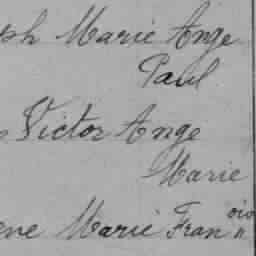 sph Marie Ange
Paul
Victor Ange
Marie
ene Marie Fran